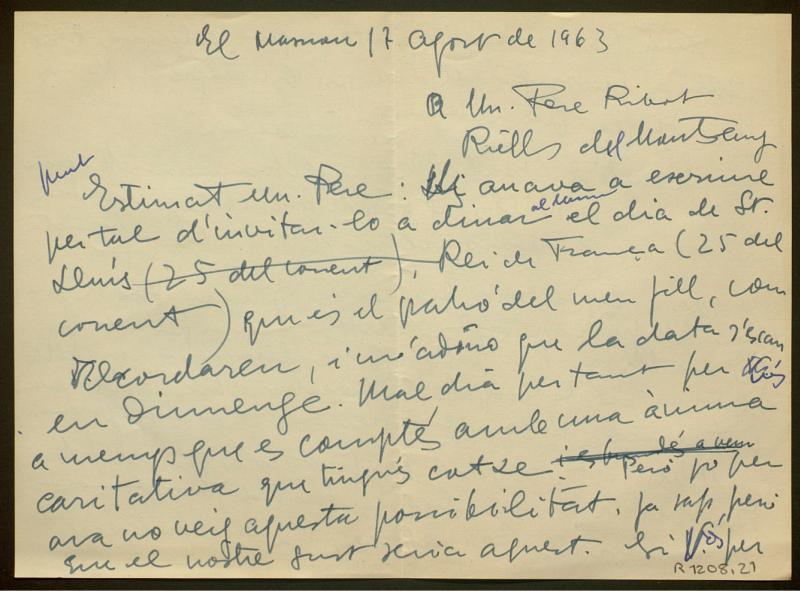 El Masnou 17 agost de 1963
A Mn. Pere Ribot
Riells del Montseny
Estimat Mn. Pere: anava a escriure
per tal d'invitar-lo a dinar al Masnou el dia de St.
Lluís (25 del corrent), Rei de França (25 del
corrent) que és el patró del meu fill, com
recordaren, i m'adono que la data s'escau
en diumenge. Mal dia per tant per Vós
a menys que es comptés amb una ànima
caritativa que tingués cotxe. Però jo per
ara no veig aquesta possibilitat. Ja sap, però
que el nostre gust seria aquest. Si Vós per
R 1208,21